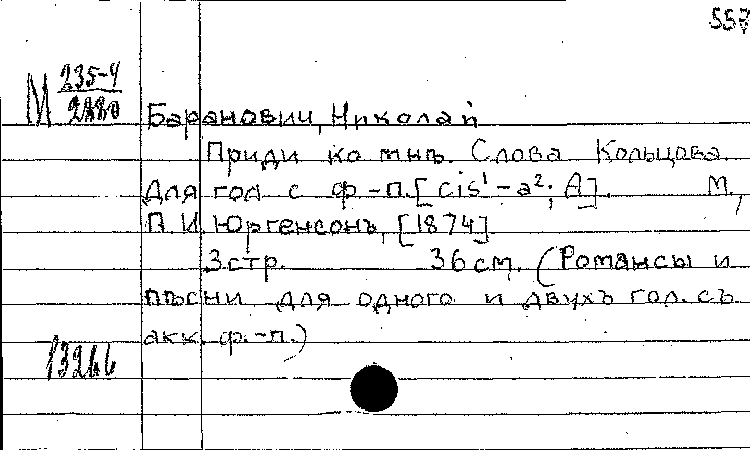 557
М 235-4
2880
Баранович, Николай
Приди ко мнѣ. Слова Кольцова.
Для гол. с ф.-п. [cis¹-a²; A]. М.,
П.И. Юргенсонъ, [1874].
3 стр. 36 см. (Романсы и
пѣсни для одного и двухъ гол. съ
акк. ф.-п.)
13266